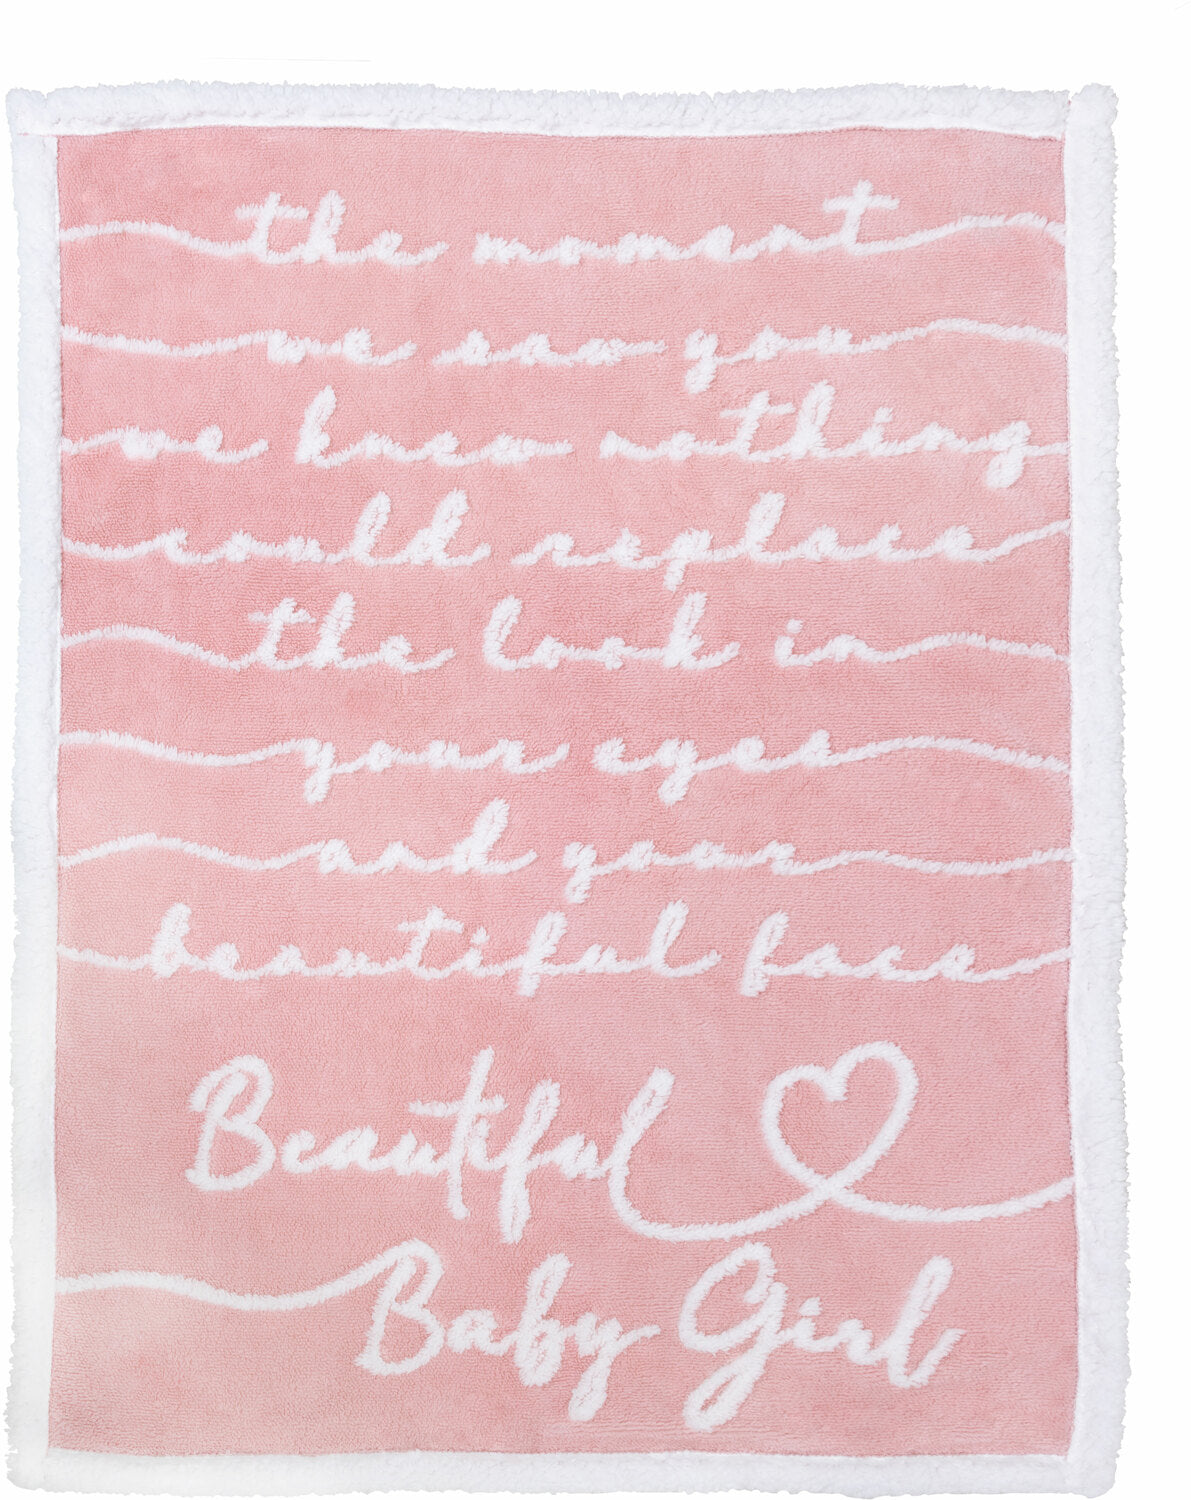 the moment
we saw you
we knew nothing
could replace
the look in
your eyes
and your
beautiful face
Beautiful
Baby Girl